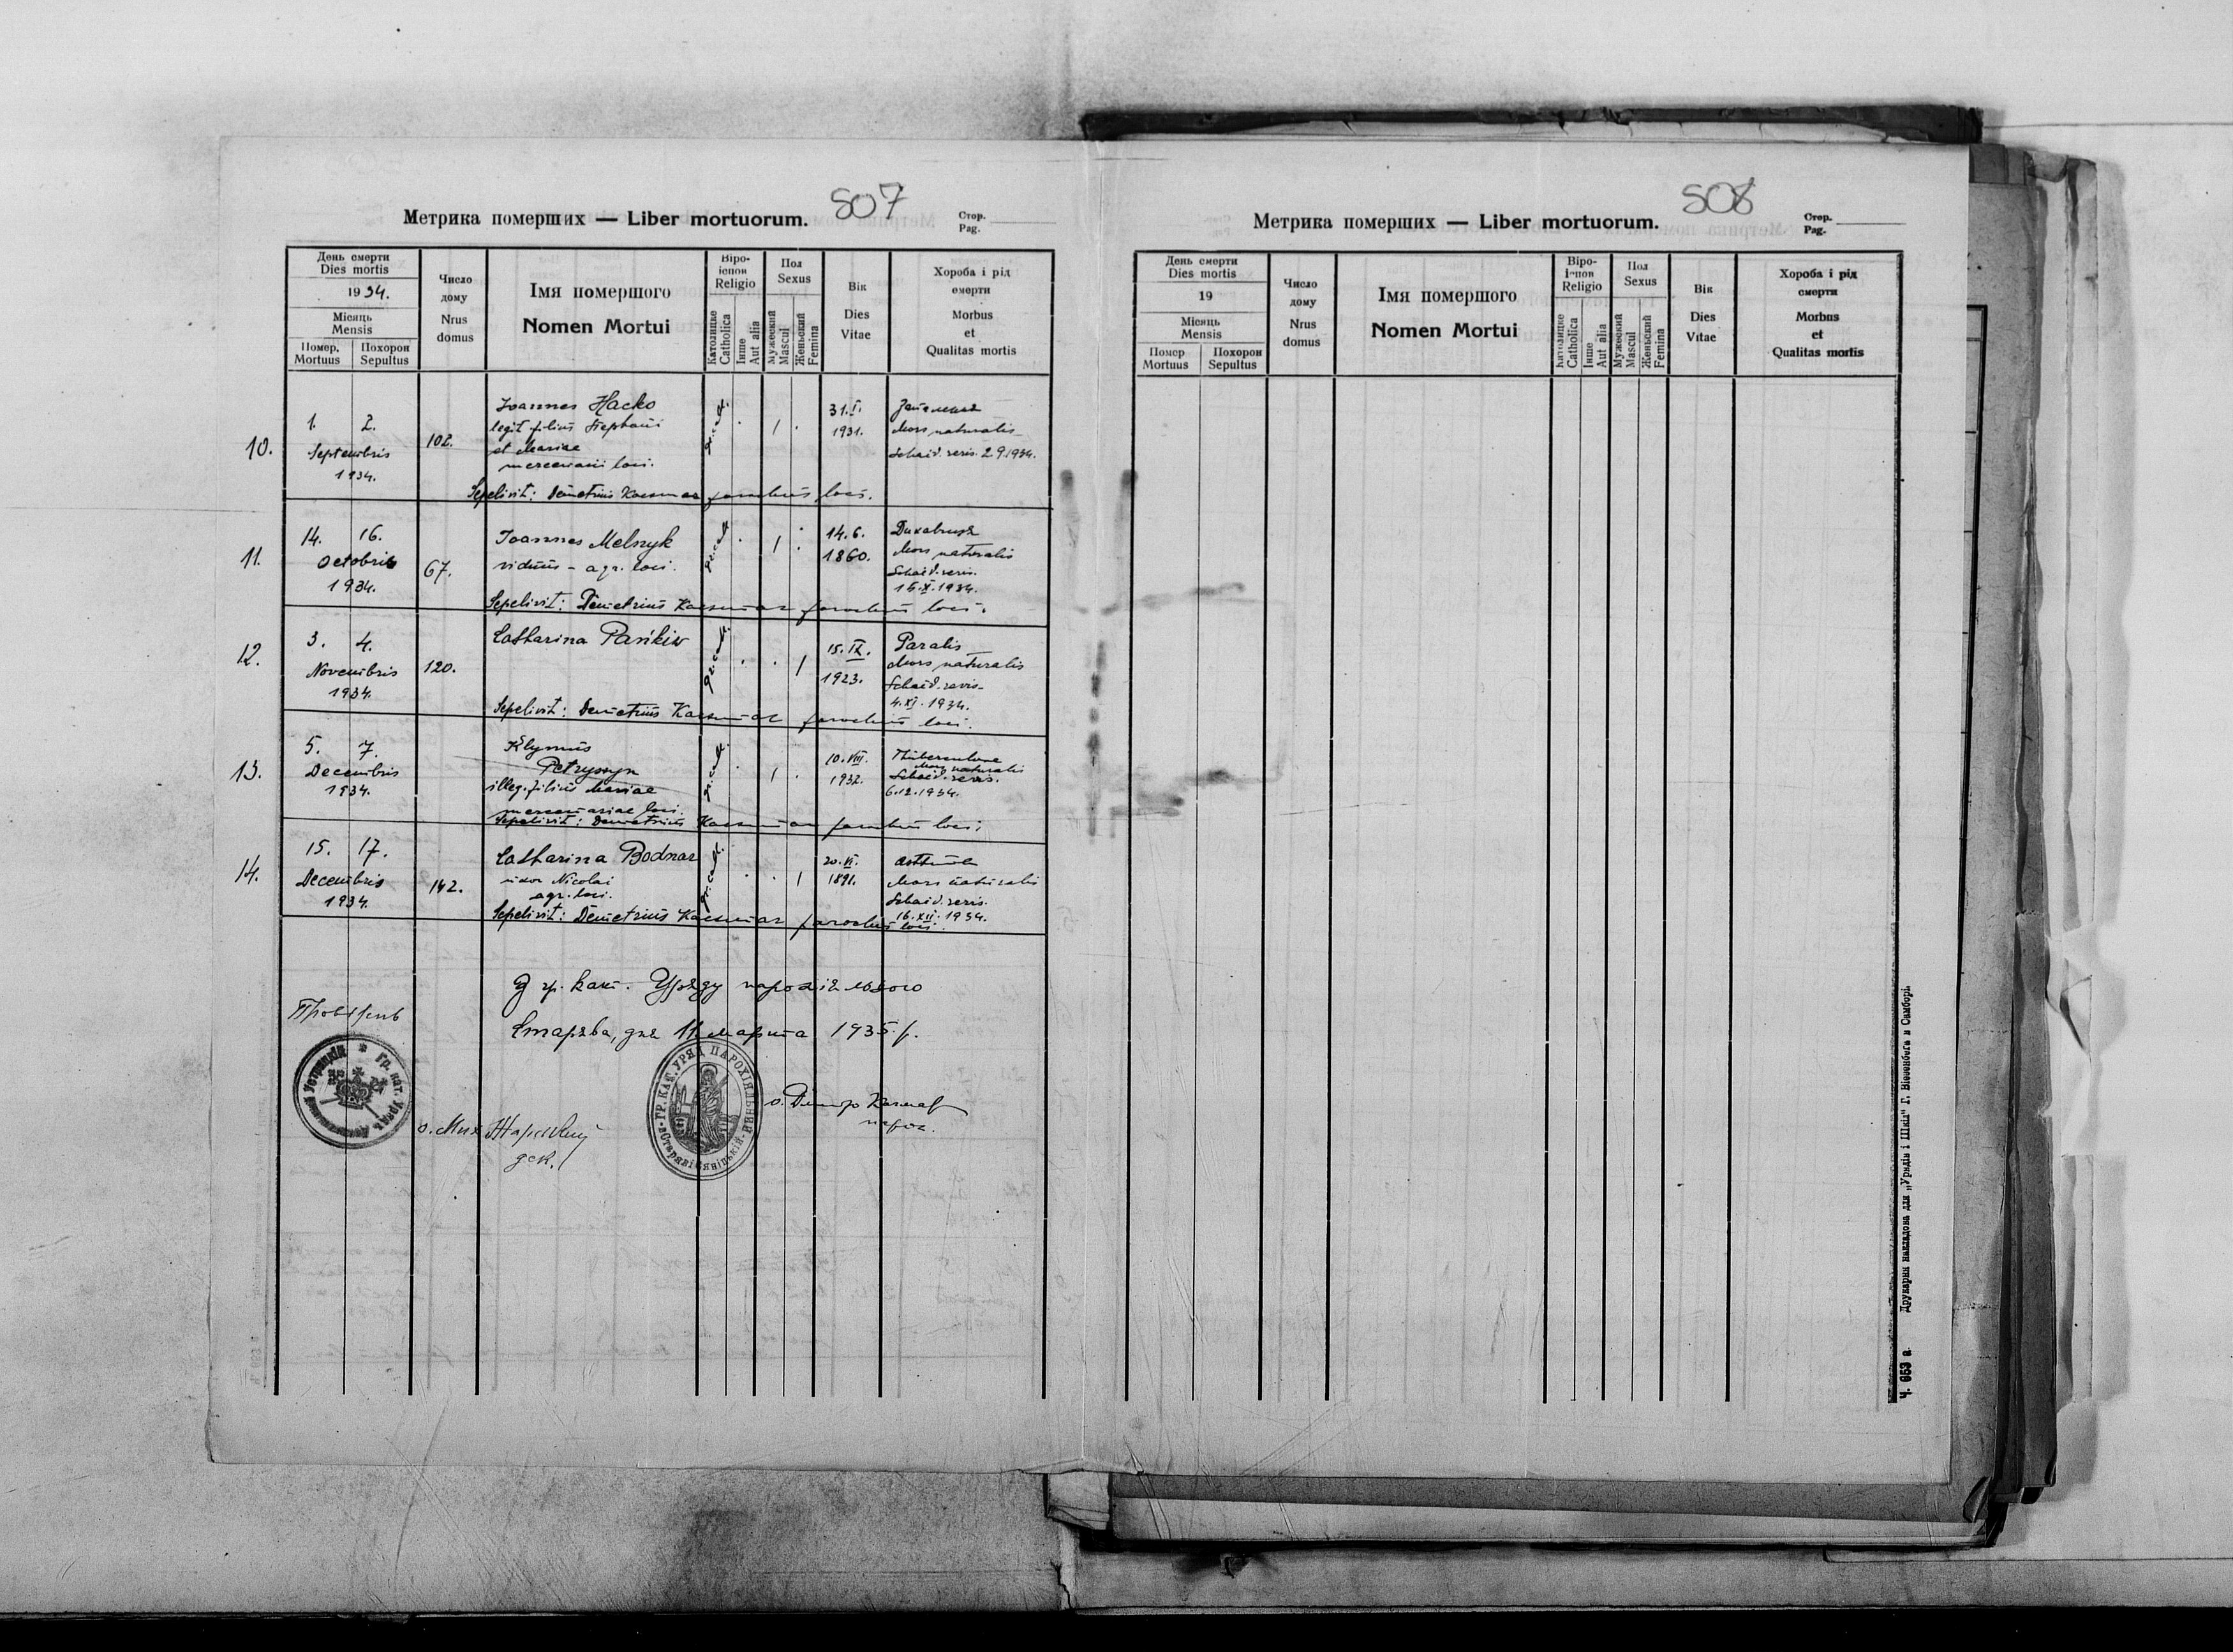 507
Метрика померших — Liber mortuorum.
Стор.
Pag.
День смерти
Dies mortis
1934.
Місяць
Mensis
Помер.
Mortuus
Похорон
Sepultus
Число
дому
Nrus
domus
Імя помершого
Nomen Mortui
Віро-
іспов
Religio
Католицке
Catholica
Інше
Aut alia
Пол
Sexus
Мужеский
Mascul
Женьский
Femina
Вік
Dies
Vitae
Хороба і рід
смерти
Morbus
et
Qualitas mortis
10.
1. 2.
Septembris
1934.
102.
Joannes Hacko
legit. filius Stephani
et Mariae
mercenarii loci.
gr. cath.
31.I.
1931.
Mors naturalis
Schaid. revis. 2.9.1934.
Sepelivit: Demetrius Kaczmar parochus loci.
11.
14. 16.
Octobris
1934.
67.
Joannes Melnyk
viduus - agr. loci.
gr. cath.
14.6.
1860.
Mors naturalis
Schaid. revis.
16.X.1934.
Sepelivit: Demetrius Kaczmar parochus loci.
12.
3. 4.
Novembris
1934.
120.
Catharina Pańkiw
gr. cath.
15.IX.
1923.
Paralis
Mors naturalis
Schaid. revis.
4.XI.1934.
Sepelivit: Demetrius Kaczmar parochus loci.
13.
5. 7.
Decembris
1934.
Klymus
Petryszyn
illeg. filius Mariae
mercenariae loci.
gr. cath.
10.VIII.
1932.
Mors naturalis
Schaid. revis.
6.12.1934.
Sepelivit: Demetrius Kaczmar parochus loci.
14.
15. 17.
Decembris
1934.
142.
Catharina Bodnar
uxor Nicolai
agr. loci.
gr. cath.
20.VI.
1891.
asthma
Mors naturalis
Schaid. revis.
16.XII.1934.
Sepelivit: Demetrius Kaczmar parochus loci.
гр. кат. Уряду парохіяльного
Старява, дня 11 марта 1935 р.
Провірив
ГР. КАТ. УРЯД ПАРОХІЯЛЬНИЙ
о. Дмитро Качмар
парох.
о. Мих.
дек.
508
Метрика померших — Liber mortuorum.
Стор.
Pag.
День смерти
Dies mortis
19
Місяць
Mensis
Помер
Mortuus
Похорон
Sepultus
Число
дому
Nrus
domus
Імя помершого
Nomen Mortui
Віро-
іспов
Religio
Католицке
Catholica
Інше
Aut alia
Пол
Sexus
Мужеский
Mascul
Женьский
Femina
Вік
Dies
Vitae
Хороба і рід
смерти
Morbus
et
Qualitas mortis
Ч. 653 а. Друкарня накладова для „Урядів і Шкіл" Г. Візенберга в Самборі.